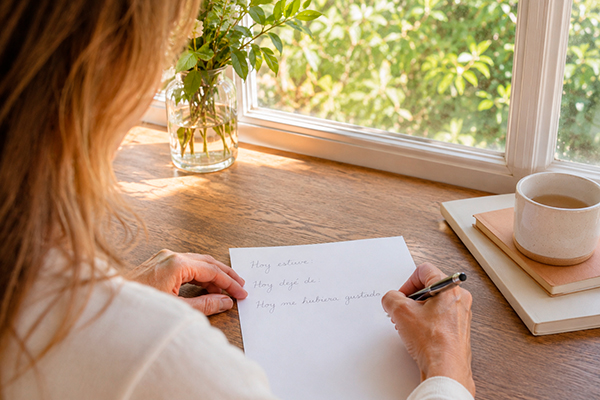 Hoy estuve.
Hoy dejé de.
Hoy me hubiera gustado